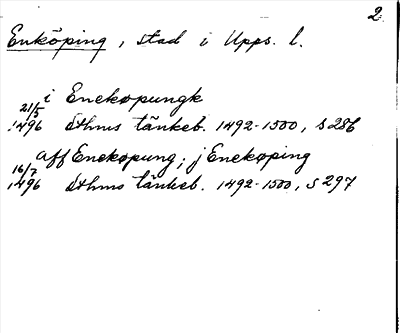 2
Enköping, stad i Upps. l.
i Enekøpungk
21/5 1496 Sthms tänkeb. 1492-1500, s 286
aff Enekøpung; j Enekøping
16/7 1496 Sthms tänkeb. 1492-1500, s 297